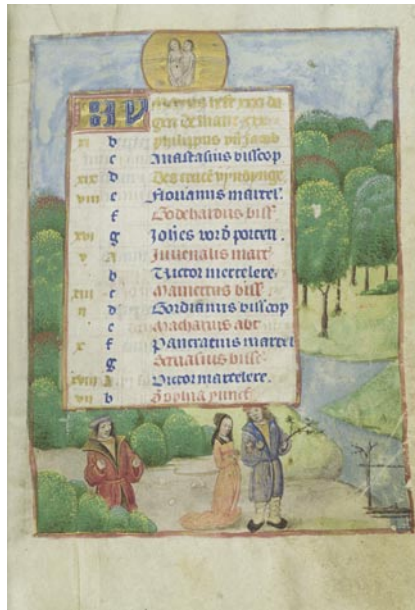 heft xxxi da
gen de mane xxx
philippus vn jacob
Anastasius bisscop
xix d Des cruce vyndynge
viii e Florianus martel
f Godehardus biss
xvi g Johes vord porten
v A Juuenalis mart
b Victor mertelere
xiii c Mamertus biss
ii d Gordianus bisscop
e Macharius abt
x f Pancratius martel
g Seruasius bissc
xviii A Victor martelere
vii b Sophia